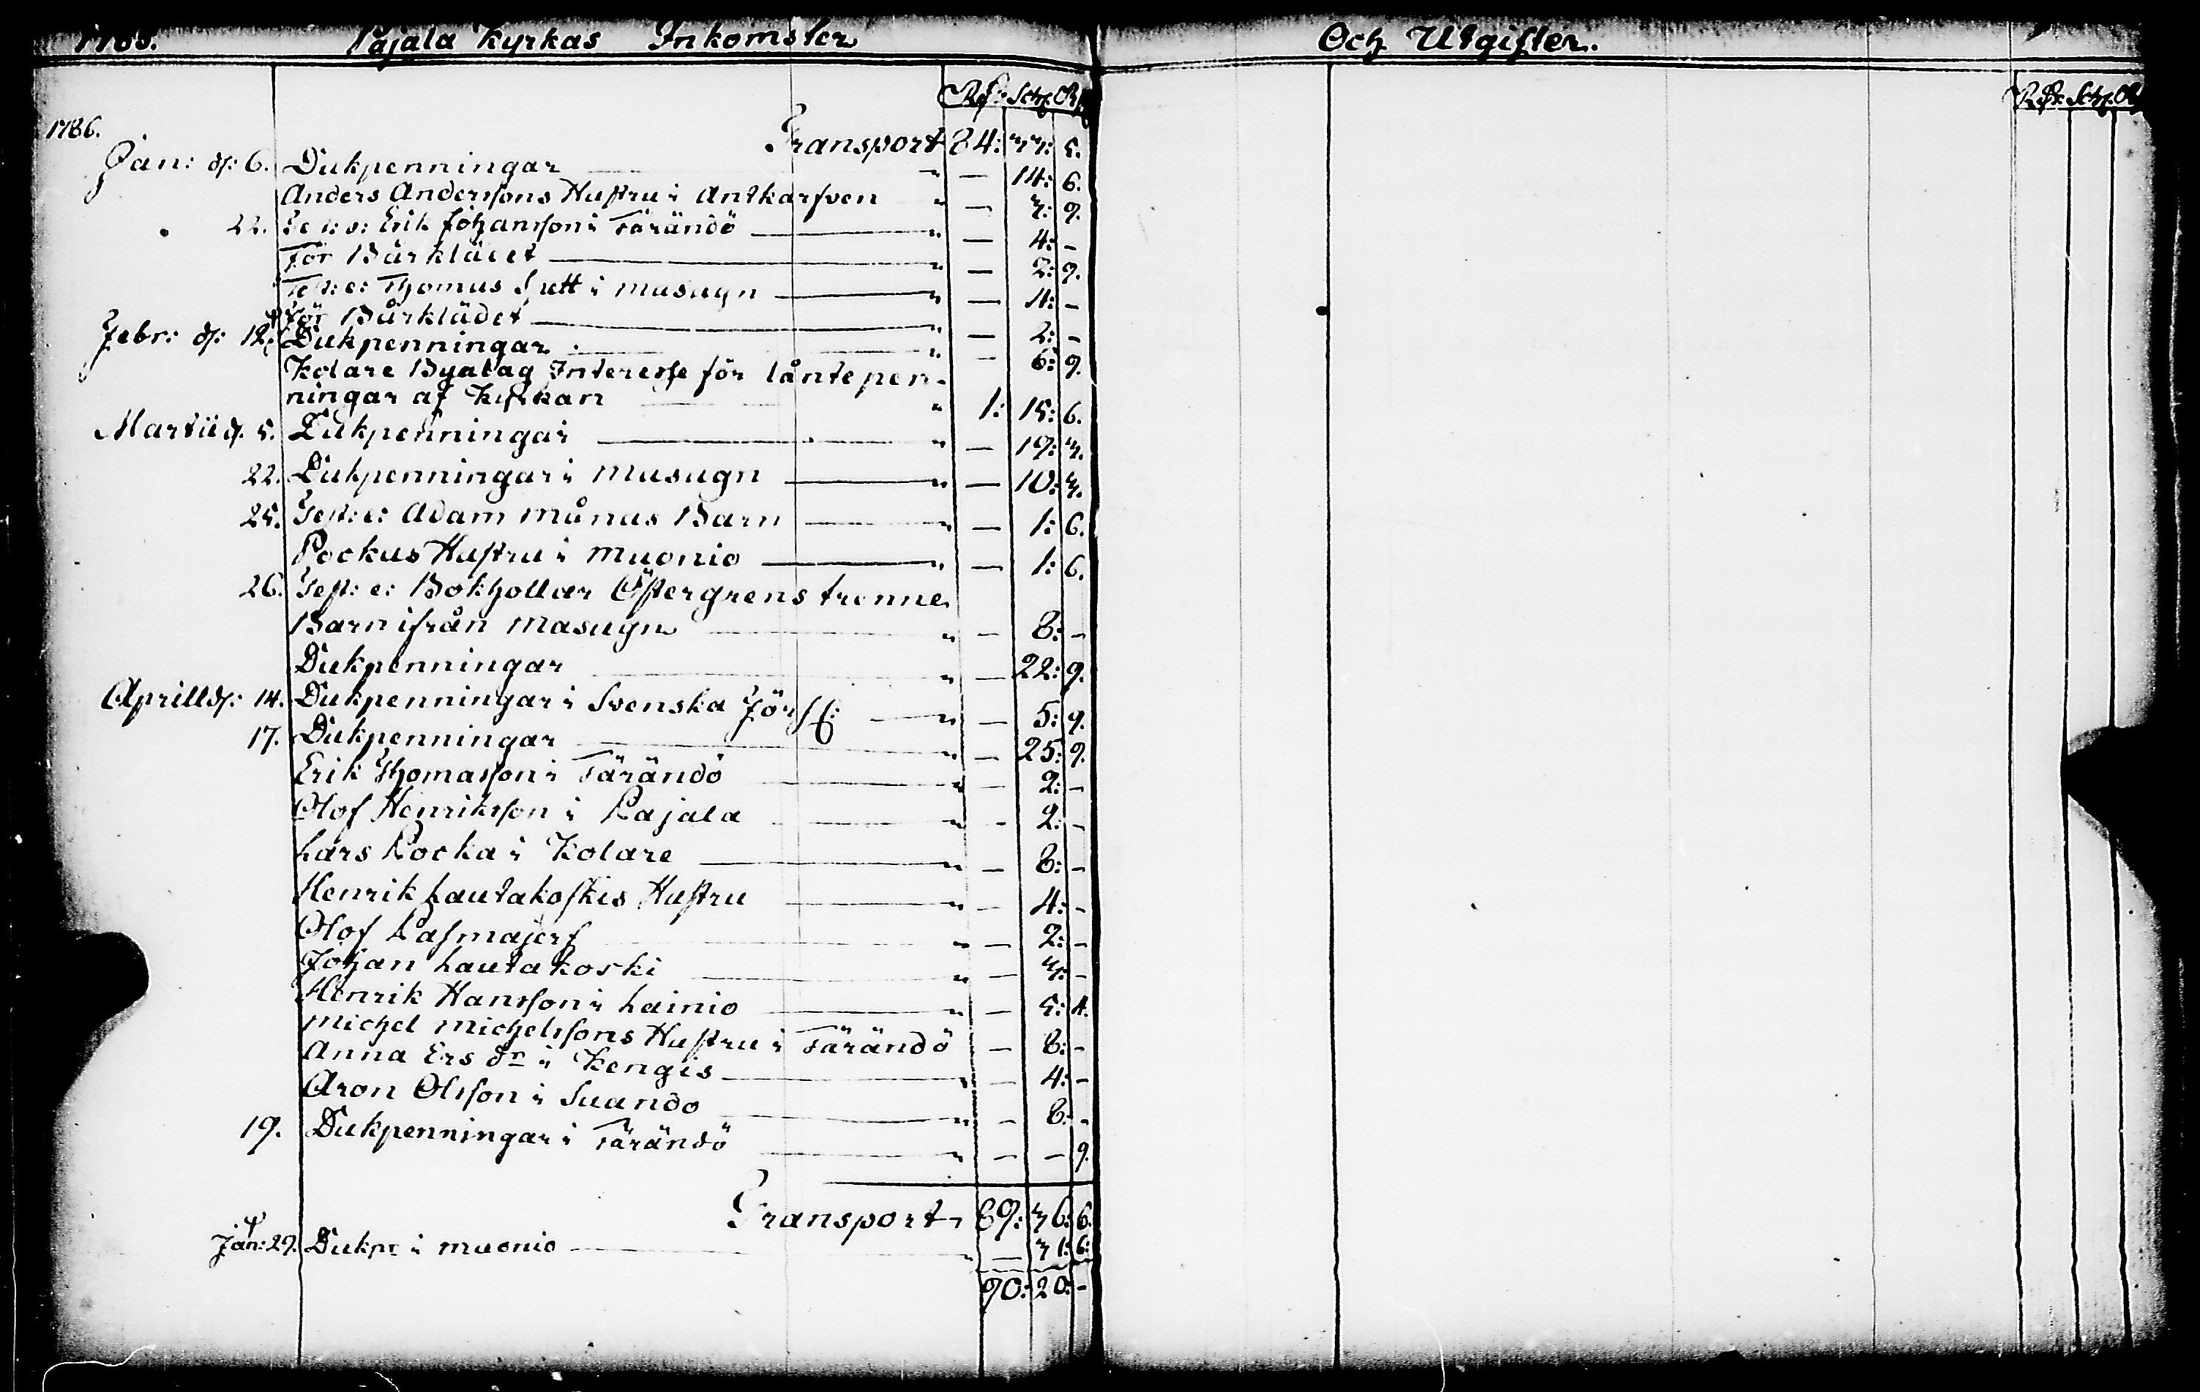 Pajala Kyrkas Inkomster
Rdr: Sch: Rst
1786. Transport 84: 33: 5.
Jan: d: 6. Dukpenningar " — 14: 6.
Anders Anderssons Hustru i Antkarfven " — 3: 9.
22. Erik Johansson i Tärändö " — 4: -
För Bårklädet " — 2: 9.
Test: e: Thomus i Masugn " — 4: -
för Bårklädet " — 2: -
Febr: d: 12. Dukpenningar " — 6: 9.
Kolare Byalag Interesse för lånte pen-
ningar af Kyrkan " 1: 15: 6.
Martii d. 5. Dukpenningar " — 19: 3.
22. Dukpenningar i Masugn " — 10: 3.
25. Test: e: Adam Månas Barn " — 1: 6.
Pockus Hustru i Muonio " — 1: 6.
26. Test: e: Bokhollar Östergrens trenne
Barn ifrån Masugn " — 8: -
Dukpenningar " — 22: 9.
Aprill d: 14. Dukpenningar i Svenska Förs: " — 5: 9.
17. Dukpenningar " — 25: 9.
Erik Thomasson i Tärändö " — 2: -
Olof Henriksson i Pajala " - 2: -
Lars Pocka i Kolare " — 8: -
Henrik Lautakoskis Hustru " — 4: -
Olof Pasmajerf " — 2: -
Johan Lautakoski " — 3: -
Henrik Hansson i Lainio " — 5: 4.
Michel Michelssons Hustru i Tärändö — 8: -
Anna Ers dr i Kengis " — 4: -
Aron Olsson i Suando " - 8: -
19. Dukpenningar i Tärändö " — — 9.
Transport " 89: 36: 6.
Jan: 29. Dukpr i Muonio " — 31: 6:
90: 20: -
Och Utgifter.
Rdr: Sch: Rst